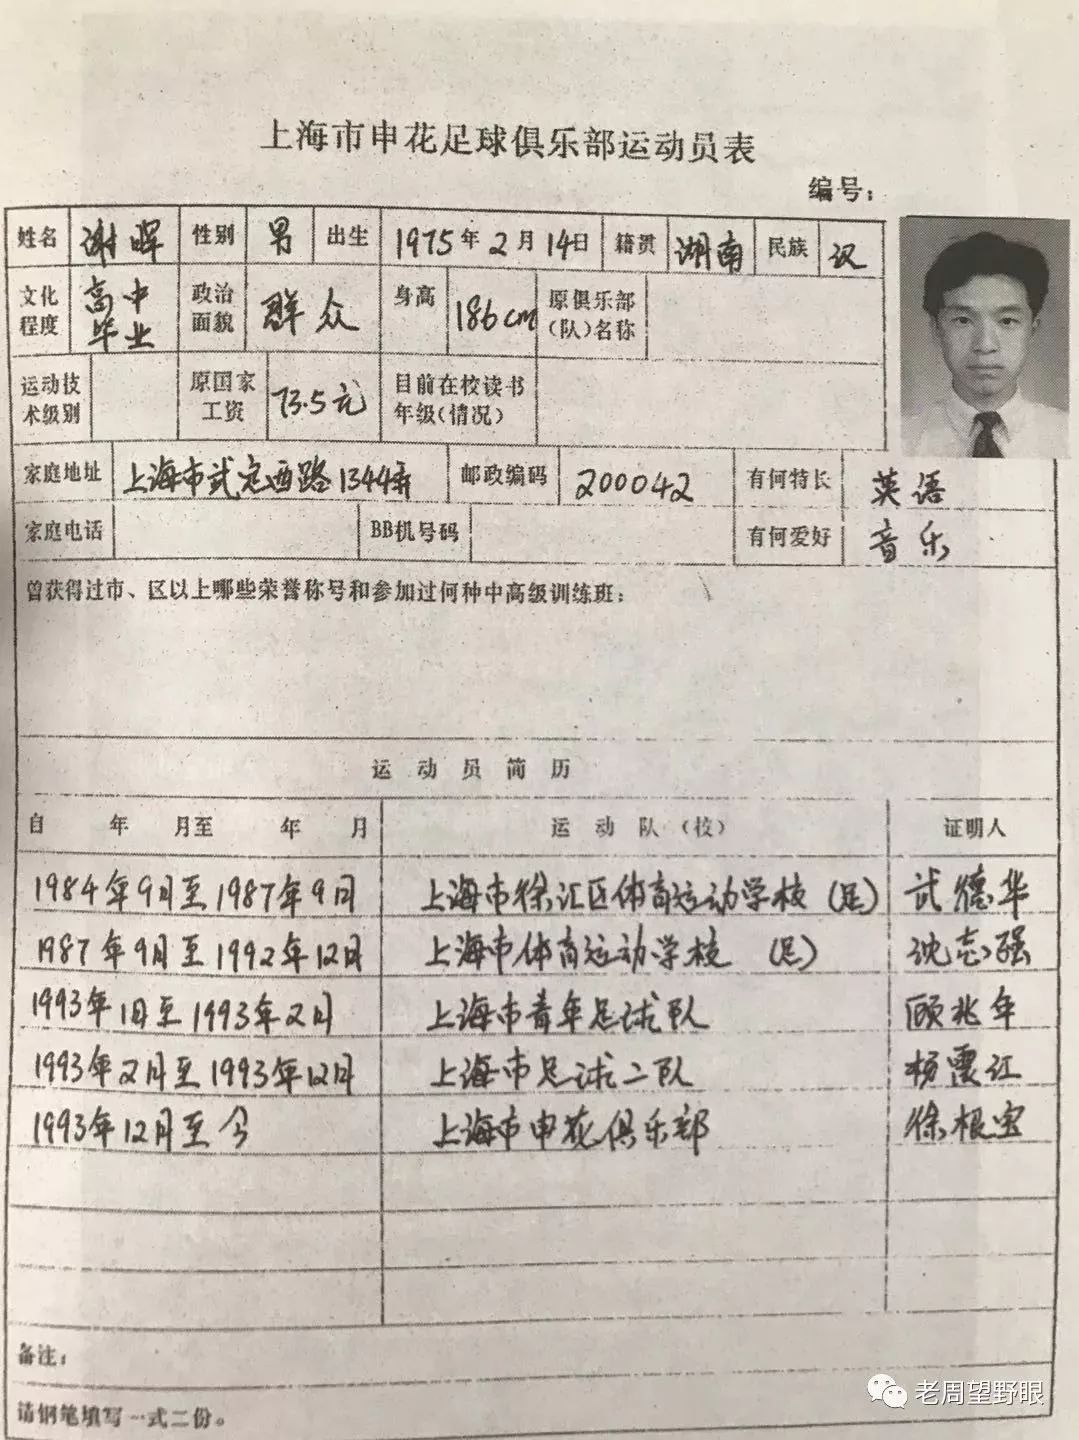 上海市申花足球俱乐部运动员表
编号：
姓名 谢晖 性别 男 出生 1975年2月14日 籍贯 湖南 民族 汉
文化程度 高中毕业 政治面貌 群众 身高 186cm 原俱乐部(队)名称
运动技术级别 原国家工资 73.5元 目前在校读书年级(情况)
家庭地址 上海市武定西路1344弄 邮政编码 200042 有何特长 英语
家庭电话 BB机号码 有何爱好 音乐
曾获得过市、区以上哪些荣誉称号和参加过何种中高级训练班：
运动员简历
自 年 月至 年 月 运动队（校） 证明人
1984年9月至1987年9月 上海市徐汇区体育运动学校（足） 武德华
1987年9月至1992年12月 上海市体育运动学校（足） 沈志强
1993年1月至1993年2月 上海市青年足球队 顾兆年
1993年2月至1993年12月 上海市足球二队 杨震江
1993年12月至今 上海市申花俱乐部 徐根宝
备注：
请钢笔填写一式二份。
老周望野眼